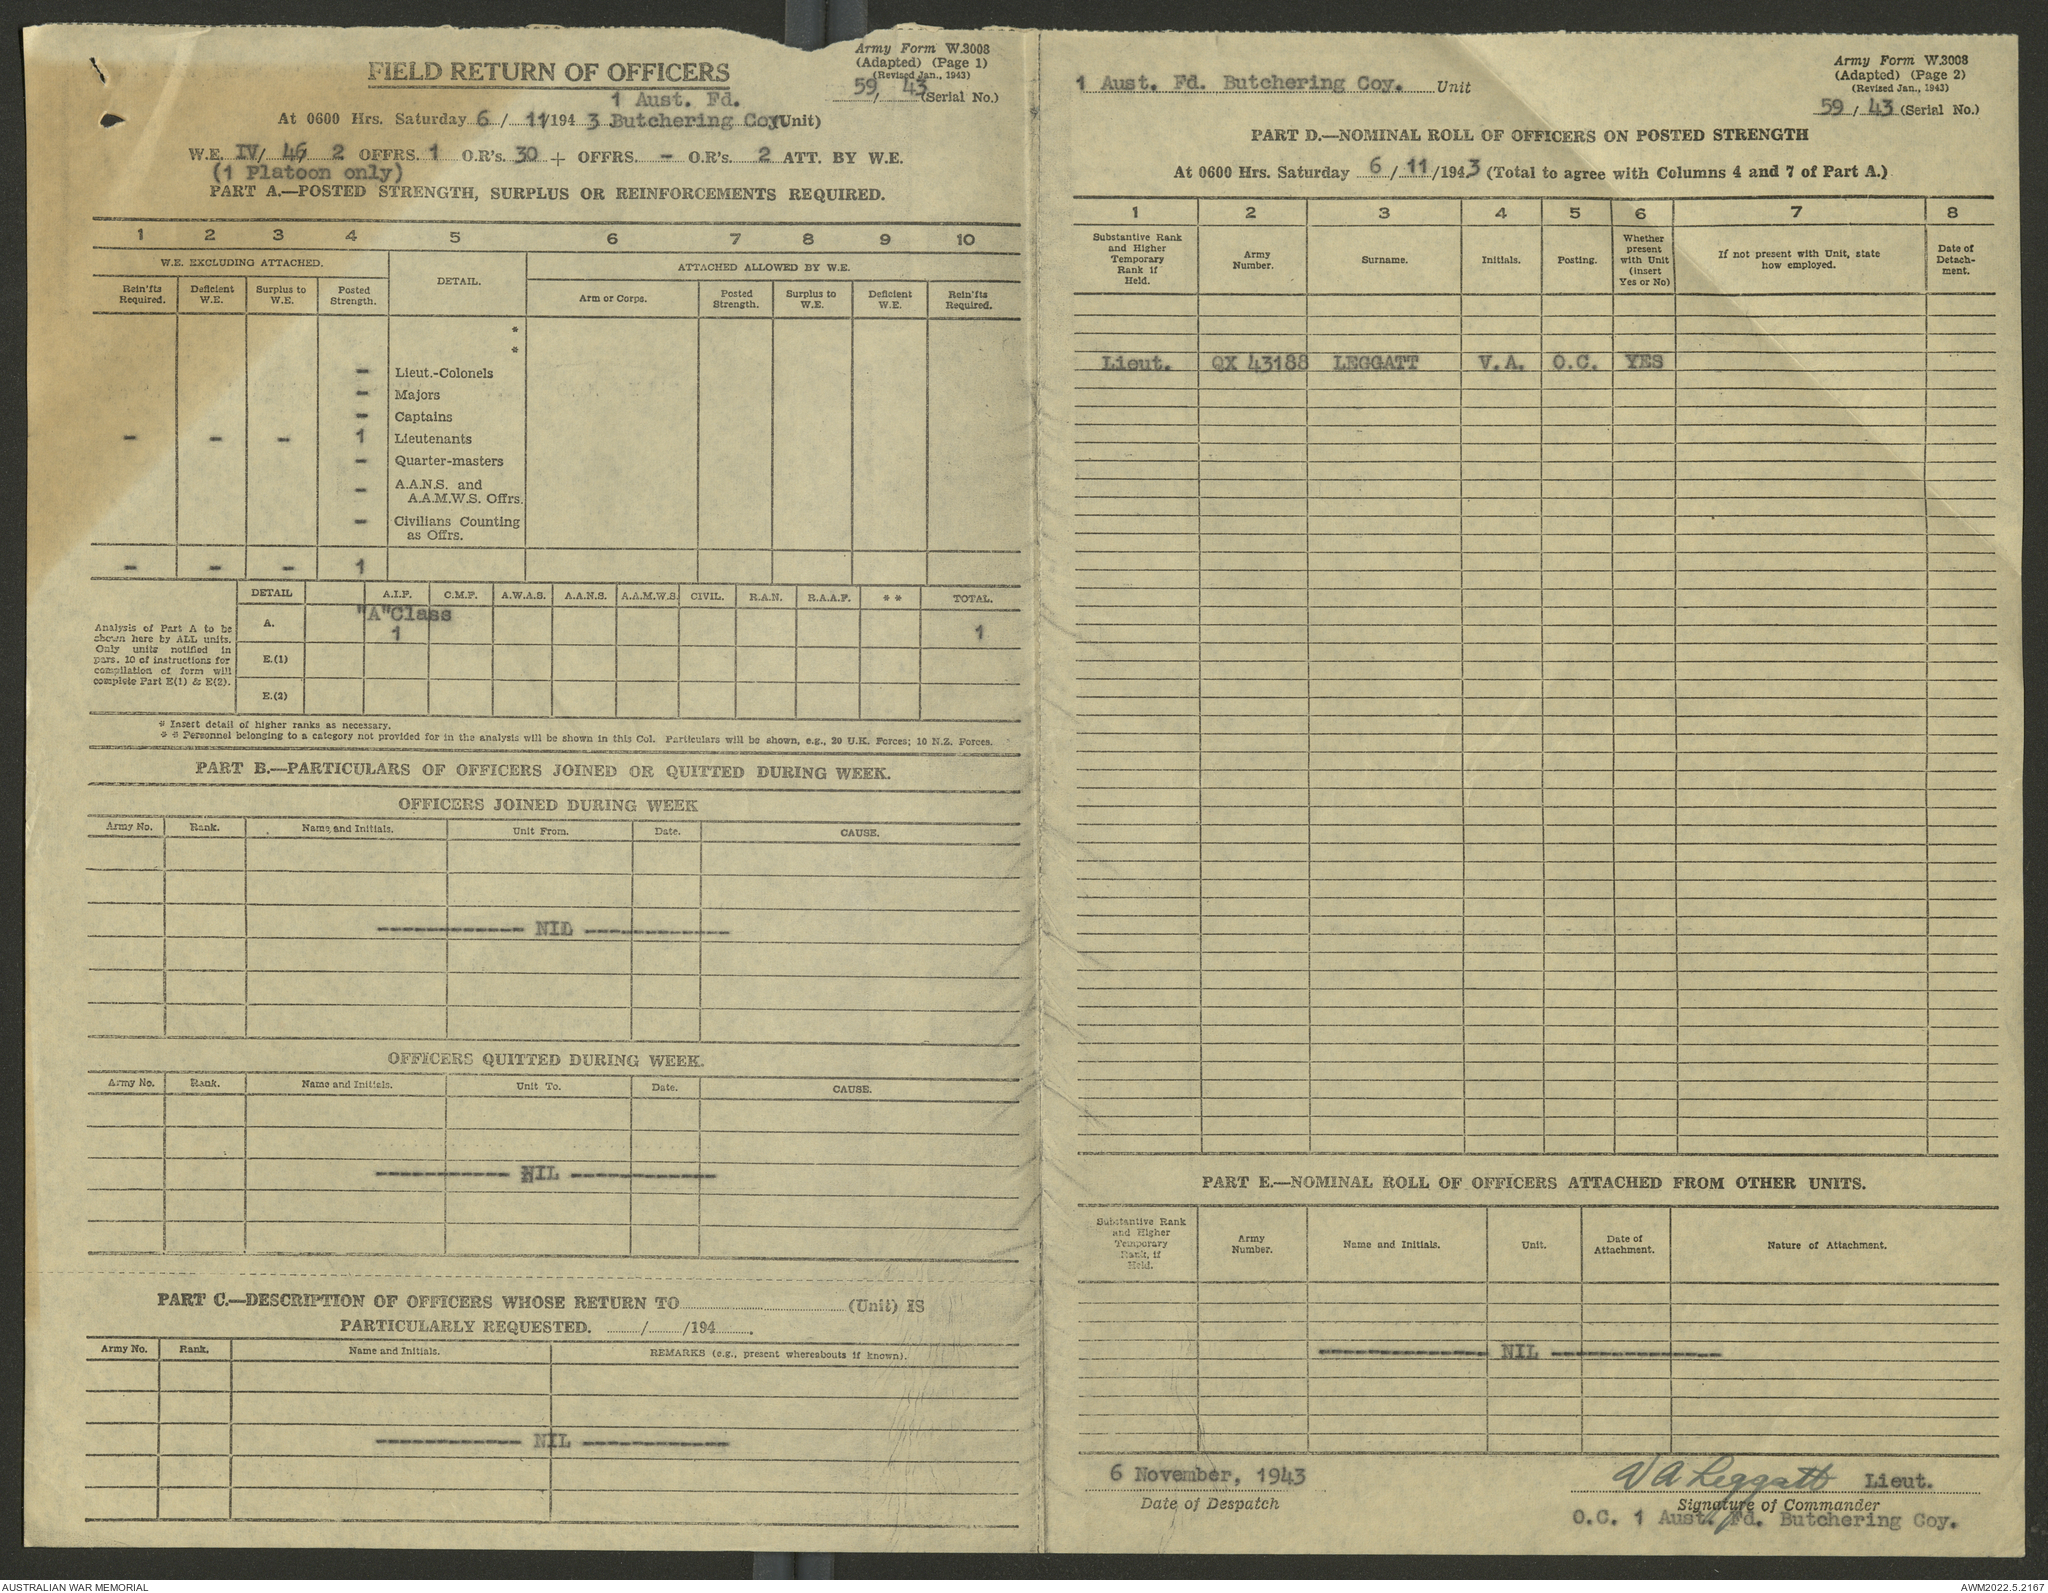 FIELD RETURN OF OFFICERS
Army Form W.3008
(Adapted) (Page 1)
(Revised Jan., 1943)
59/ 43 (Serial No.)
1 Aust. Fd.
At 0600 Hrs. Saturday 6/ 11/194 3 Butchering Coy (Unit)
W.E. IV/ 46/ 2 OFFRS. 1 O.R's. 30 + OFFRS. - O.R's. 2 ATT. BY W.E.
(1 Platoon only)
PART A.—POSTED STRENGTH, SURPLUS OR REINFORCEMENTS REQUIRED.
1 2 3 4 5 6 7 8 9 10
W.E. EXCLUDING ATTACHED. DETAIL. ATTACHED ALLOWED BY W.E.
Rein'fts Required. Deficient W.E. Surplus to W.E. Posted Strength. Arm or Corps. Posted Strength. Surplus to W.E. Deficient W.E. Rein'fts Required.
*
*
- Lieut.-Colonels
- Majors
- Captains
- - - 1 Lieutenants
- Quarter-masters
- A.A.N.S. and
A.A.M.W.S. Offrs.
- Civilians Counting
as Offrs.
- - - 1
DETAIL A.I.F. C.M.F. A.W.A.S. A.A.N.S. A.A.M.W.S. CIVIL. R.A.N. R.A.A.F. * * TOTAL.
"A"Class
A. 1 1
E.(1)
E.(2)
Analysis of Part A to be
shown here by ALL units.
Only units notified in
pars. 10 of instructions for
compilation of form will
complete Part E(1) & E(2).
* Insert detail of higher ranks as necessary.
* * Personnel belonging to a category not provided for in the analysis will be shown in this Col. Particulars will be shown, e.g., 20 U.K. Forces; 10 N.Z. Forces.
PART B.—PARTICULARS OF OFFICERS JOINED OR QUITTED DURING WEEK.
OFFICERS JOINED DURING WEEK
Army No. Rank. Name and Initials. Unit From. Date. CAUSE.
------------ NIL ------------
OFFICERS QUITTED DURING WEEK.
Army No. Rank. Name and Initials. Unit To. Date. CAUSE.
----------- NIL ------------
PART C.—DESCRIPTION OF OFFICERS WHOSE RETURN TO (Unit) IS
PARTICULARLY REQUESTED. / /194 .
Army No. Rank. Name and Initials. REMARKS (e.g., present whereabouts if known).
------------ NIL ------------
1 Aust. Fd. Butchering Coy. Unit
Army Form W.3008
(Adapted) (Page 2)
(Revised Jan., 1943)
59/ 43 (Serial No.)
PART D.—NOMINAL ROLL OF OFFICERS ON POSTED STRENGTH
At 0600 Hrs. Saturday 6/ 11/1943 (Total to agree with Columns 4 and 7 of Part A.)
1 2 3 4 5 6 7 8
Substantive Rank and Higher Temporary Rank if Held. Army Number. Surname. Initials. Posting. Whether present with Unit (insert Yes or No) If not present with Unit, state how employed. Date of Detach-ment.
Lieut. QX 43188 LEGGATT V.A. O.C. YES
PART E.—NOMINAL ROLL OF OFFICERS ATTACHED FROM OTHER UNITS.
Substantive Rank and Higher Temporary Rank, if Held. Army Number. Name and Initials. Unit. Date of Attachment. Nature of Attachment.
-------------- NIL --------------
6 November, 1943
Date of Despatch
V A Leggatt Lieut.
Signature of Commander
O.C. 1 Aust. Fd. Butchering Coy.
AUSTRALIAN WAR MEMORIAL
AWM2022.5.2167